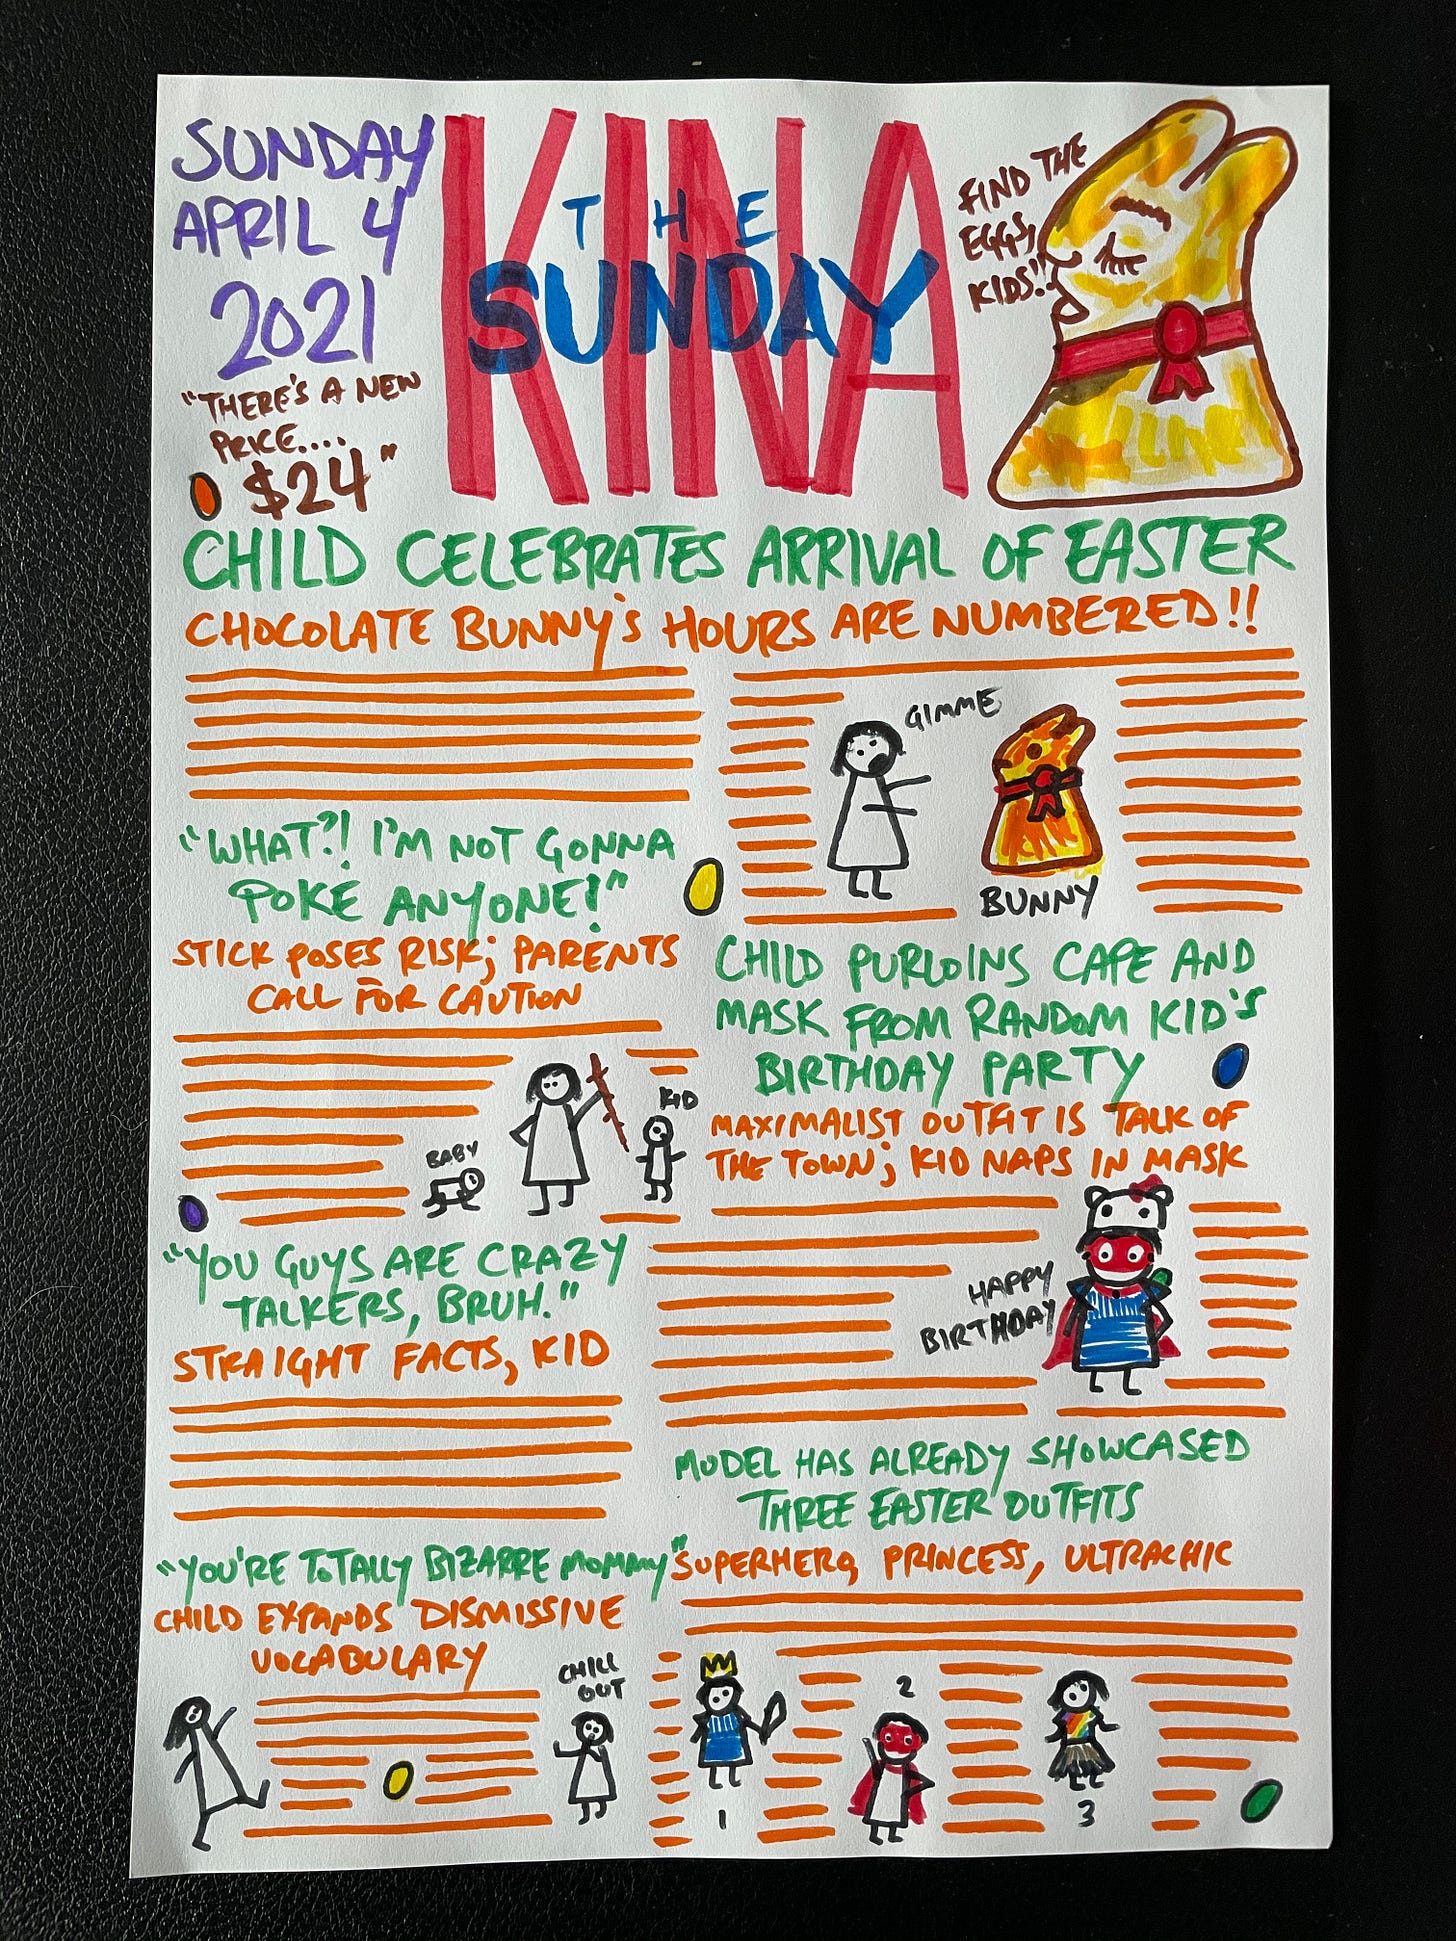 SUNDAY
APRIL 4
2021
"THERE'S A NEW
PRICE....
$24"
THE
SUNDAY
KINA
FIND THE
EGGS,
KIDS!!
CHILD CELEBRATES ARRIVAL OF EASTER
CHOCOLATE BUNNY'S HOURS ARE NUMBERED!!
GIMME
BUNNY
"WHAT?! I'M NOT GONNA
POKE ANYONE!"
STICK POSES RISK; PARENTS
CALL FOR CAUTION
BABY
KID
CHILD PURLOINS CAPE AND
MASK FROM RANDOM KID'S
BIRTHDAY PARTY
MAXIMALIST OUTFIT IS TALK OF
THE TOWN; KID NAPS IN MASK
HAPPY
BIRTHDAY
"YOU GUYS ARE CRAZY
TALKERS, BRUH."
STRAIGHT FACTS, KID
MODEL HAS ALREADY SHOWCASED
THREE EASTER OUTFITS
SUPERHERO, PRINCESS, ULTRACHIC
1
2
3
"YOU'RE TOTALLY BIZARRE MOMMY"
CHILD EXPANDS DISMISSIVE
VOCABULARY
CHILL
OUT